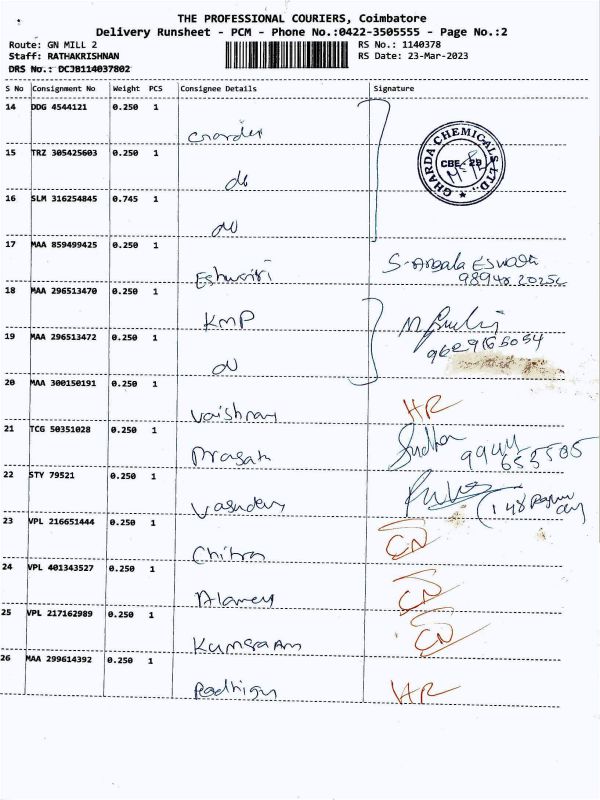 THE PROFESSIONAL COURIERS, Coimbatore
Delivery Runsheet - PCM - Phone No.:0422-3505555 - Page No.:2
Route: GN MILL 2 RS No.: 1140378
Staff: RATHAKRISHNAN RS Date: 23-Mar-2023
DRS No.: DCJB114037802
S No Consignment No Weight PCS Consignee Details Signature
14 DDG 4544121 0.250 1
GHARDA CHEMICALS LTD.,
CBE - 29
15 TRZ 305425603 0.250 1
do
16 SLM 316254845 0.745 1
do
17 MAA 859499425 0.250 1
Eshwari
18 MAA 296513470 0.250 1
KMP
19 MAA 296513472 0.250 1
9629165054
do
20 MAA 300150191 0.250 1
Vaishnav HR
21 TCG 50351028 0.250 1
Prasath Sudha 9944
653505
22 STY 79521 0.250 1
Vasudev
23 VPL 216651444 0.250 1
Chitra CN
24 VPL 401343527 0.250 1
CN
25 VPL 217162989 0.250 1
CN
26 MAA 299614392 0.250 1
HR